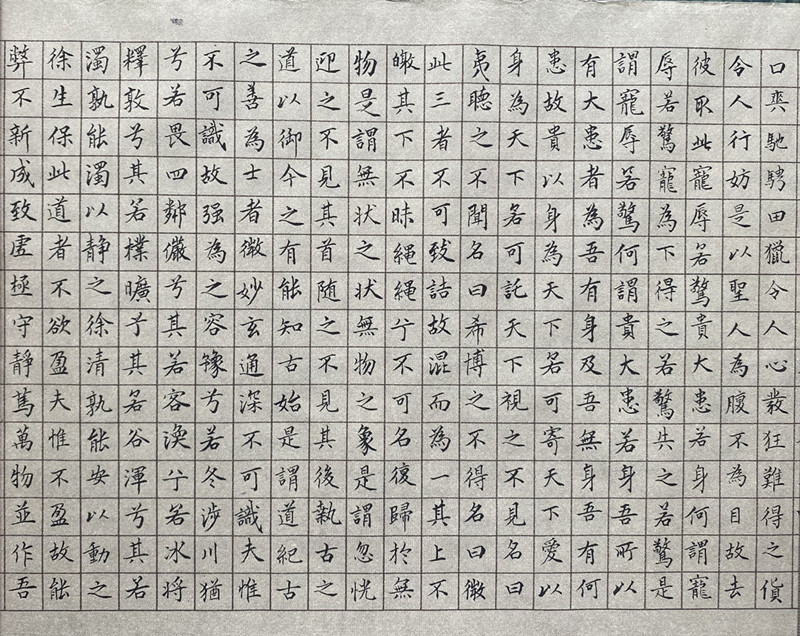 口爽馳騁田獵令人心發狂難得之貨
令人行妨是以聖人為腹不為目故去
彼取此寵辱若驚貴大患若身何謂寵
辱若驚寵為下得之若驚失之若驚是
謂寵辱若驚何謂貴大患若身吾所以
有大患者為吾有身及吾無身吾有何
患故貴以身為天下若可寄天下愛以
身為天下若可託天下視之不見名曰
夷聽之不聞名曰希博之不得名曰微
此三者不可致詰故混而為一其上不
皦其下不昧繩繩兮不可名復歸於無
物是謂無狀之狀無物之象是謂忽恍
迎之不見其首随之不見其後執古之
道以御今之有能知古始是謂道紀古
之善為士者微妙玄通深不可識夫惟
不可識故强為之容豫兮若冬涉川猶
兮若畏四鄰儼兮其若容渙兮若冰将
釋敦兮其若樸曠兮其若谷渾兮其若
濁孰能濁以静之徐清孰能安以動之
徐生保此道者不欲盈夫惟不盈故能
弊不新成致虛極守静篤萬物並作吾